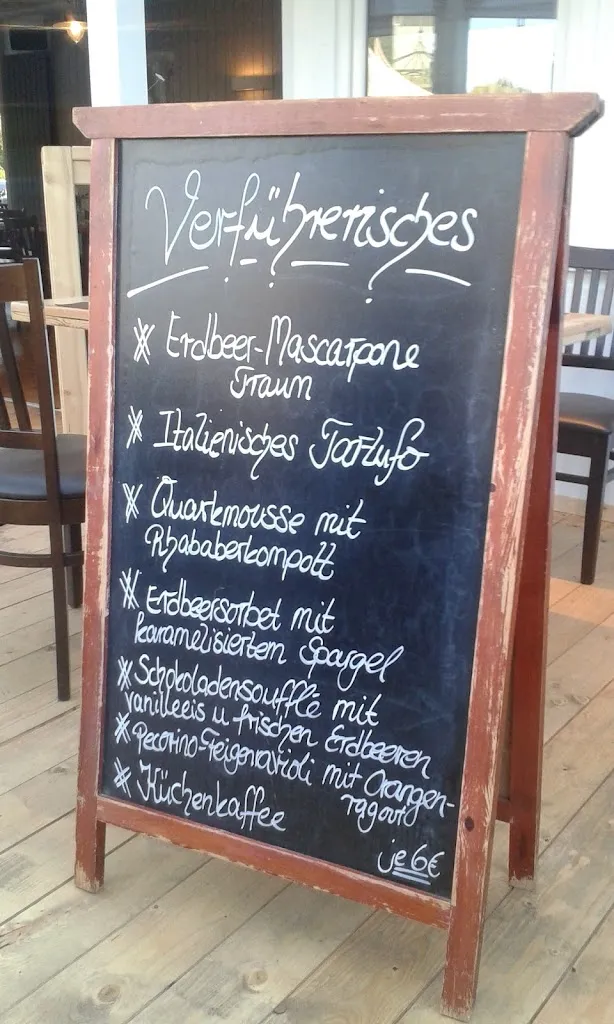 Verführerisches
* Erdbeer-Mascarpone
Traum
* Italienisches Tartufo
* Quarkmousse mit
Rhababerkompott
* Erdbeersorbet mit
karamelisiertem Spargel
* Schokoladensoufflé mit
vanilleeis u frischen Erdbeeren
* Pecorino-Feigenravioli mit Orangen-
ragout
* Küchenkaffee
je 6€